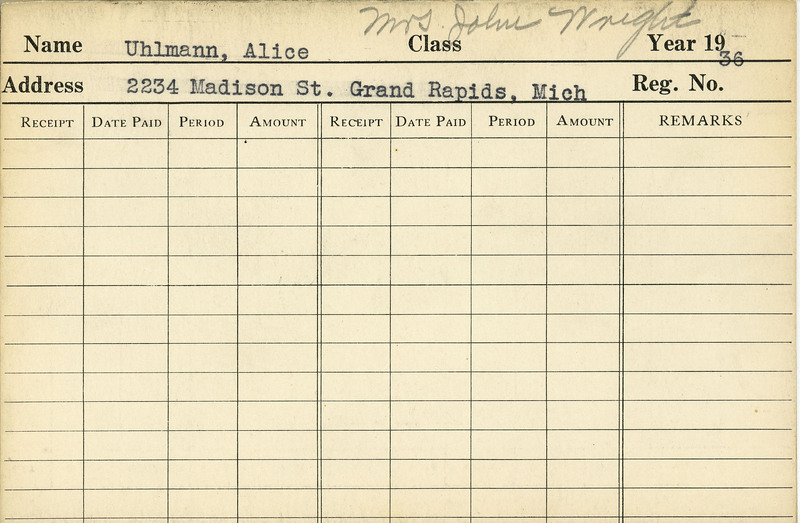 Mrs John Wright
Name Uhlmann, Alice Class Year 1936
Address 2234 Madison St. Grand Rapids, Mich Reg. No.
RECEIPT DATE PAID PERIOD AMOUNT RECEIPT DATE PAID PERIOD AMOUNT REMARKS